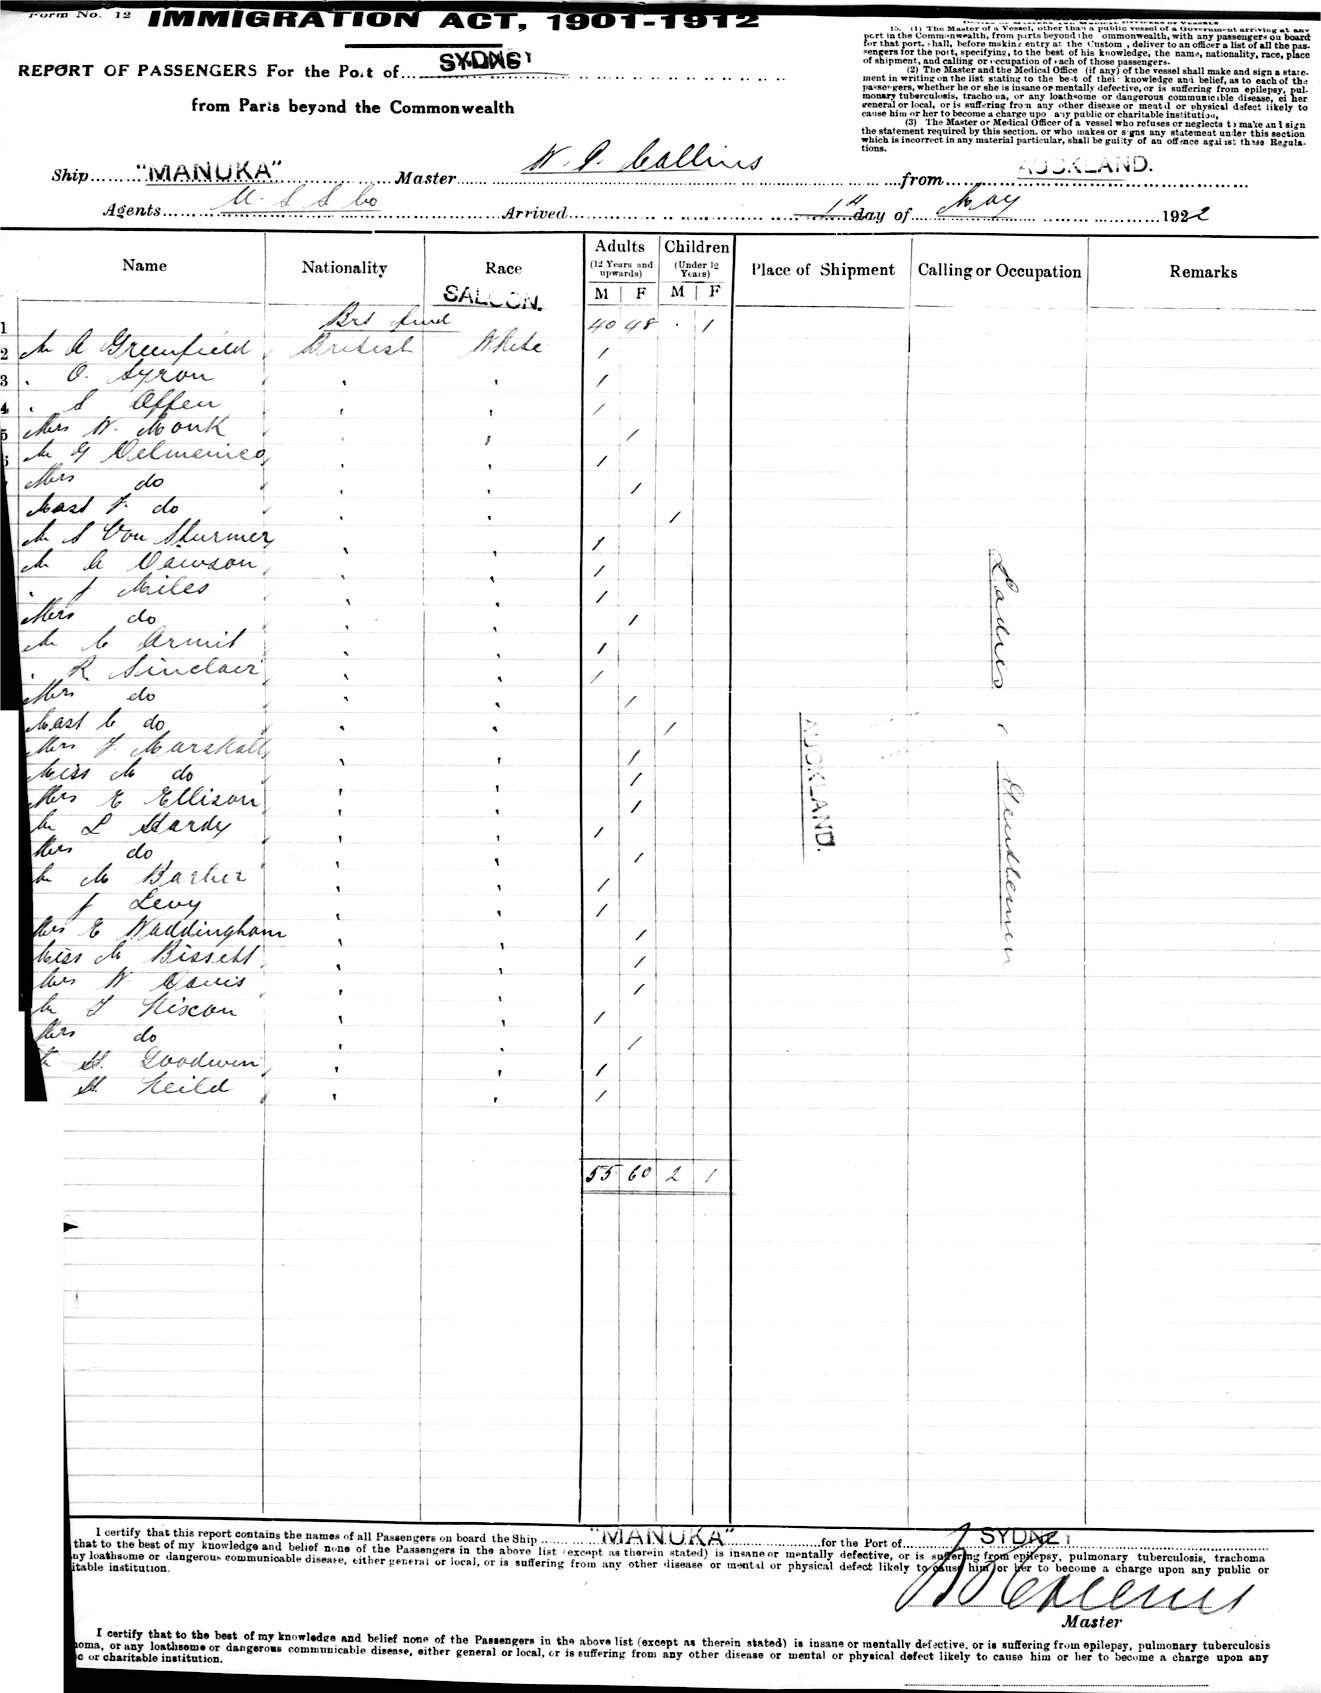 Form No. 12
IMMIGRATION ACT, 1901-1912
REPORT OF PASSENGERS For the Port of SYDNEY
from Parts beyond the Commonwealth
15. (1) The Master of a Vessel, other than a public vessel of a Government arriving at any
port in the Commonwealth, from parts beyond the ommonwealth, with any passengers on board
for that port, shall, before making entry at the Custom , deliver to an officer a list of all the pas-
sengers for the port, specifying, to the best of his knowledge, the name, nationality, race, place
of shipment, and calling or occupation of each of those passengers.
(2) The Master and the Medical Office (if any) of the vessel shall make and sign a state-
ment in writing on the list stating to the best of their knowledge and belief, as to each of the
passengers, whether he or she is insane or mentally defective, or is suffering from epilepsy, pul-
monary tuberculosis, trachoma, or any loathsome or dangerous communicable disease, either
general or local, or is suffering from any other disease or mental or physical defect likely to
cause him or her to become a charge upon any public or charitable institution,
(3) The Master or Medical Officer of a vessel who refuses or neglects to make and sign
the statement required by this section, or who makes or signs any statement under this section
which is incorrect in any material particular, shall be guilty of an offence against these Regula-
tions.
Ship "MANUKA" Master W. J. Collins from AUCKLAND.
Agents U. S. S Co Arrived 1st day of May 1922
Name Nationality Race Adults (12 Years and upwards) M F Children (Under 12 Years) M F Place of Shipment Calling or Occupation Remarks
SALOON.
1 Brt fwd 40 48 . 1
2 Mr A Greenfield British White 1
3 . O. Syron 1
4 . S Offen 1
5 Mrs W. Monk 1
Mr G Delmenico 1
Mrs do 1
Mast F. do 1
Mr S Von Sturmer 1
Mr A Dawson 1
. J Miles 1
Mrs do 1
Mr C Armit 1
. R Sinclair 1
Mrs do 1
Mast C do 1
Mrs F Marshall 1
Miss M do 1
Mrs E Ellison 1
Mr L Hardy 1
Mrs do 1
Mr M Barber 1
J Levy 1
Mrs E Waddingham 1
Miss M Bissett 1
Mrs W Davis 1
Mr T Hiscou 1
Mrs do 1
H. Goodwin 1
H. Heild 1
AUCKLAND.
Ladies & Gentlemen
55 60 2 1
I certify that this report contains the names of all Passengers on board the Ship "MANUKA" for the Port of SYDNEY
that to the best of my knowledge and belief none of the Passengers in the above list (except as therein stated) is insane or mentally defective, or is suffering from epilepsy, pulmonary tuberculosis, trachoma
ny loathsome or dangerous communicable disease, either general or local, or is suffering from any other disease or mental or physical defect likely to cause him or her to become a charge upon any public or
itable institution.
W J Collins
Master
I certify that to the best of my knowledge and belief none of the Passengers in the above list (except as therein stated) is insane or mentally defective, or is suffering from epilepsy, pulmonary tuberculosis
oma, or any loathsome or dangerous communicable disease, either general or local, or is suffering from any other disease or mental or physical defect likely to cause him or her to become a charge upon any
c or charitable institution.